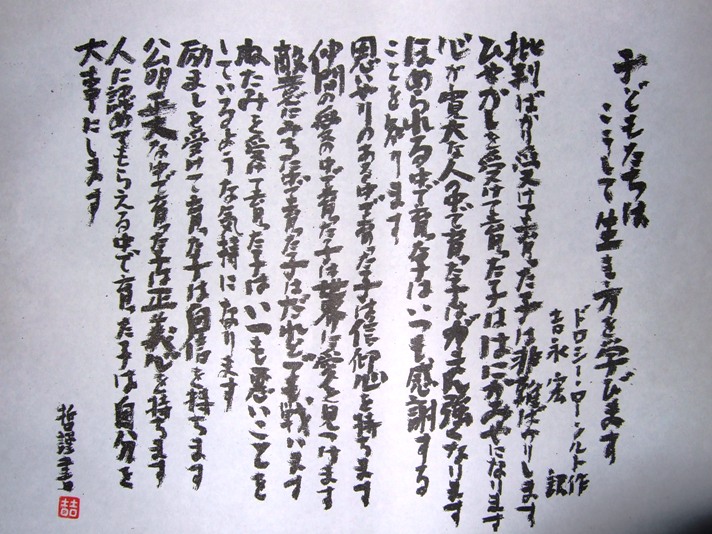 子どもたちは
こうして生き方を学びます
ドロシー・ロー・ノルト作
吉永宏 訳
批判ばかり受けて育った子は非難ばかりします
ひやかしを受けて育った子ははにかみやになります
心が寛大な人の中で育った子はがまん強くなります
ほめられる中で育った子はいつも感謝する
ことを知ります
思いやりのある中で育った子は信仰心を持ちます
仲間の愛の中で育った子は世界に愛を見つけます
敵意にみちた中で育った子はだれとでも戦います
ねたみを受けて育った子はいつも悪いことを
しているような気持になります
励ましを受けて育った子は自信を持ちます
公明正大な中で育った子は正義心を持ちます
人に認めてもらえる中で育った子は自分を
大事にします